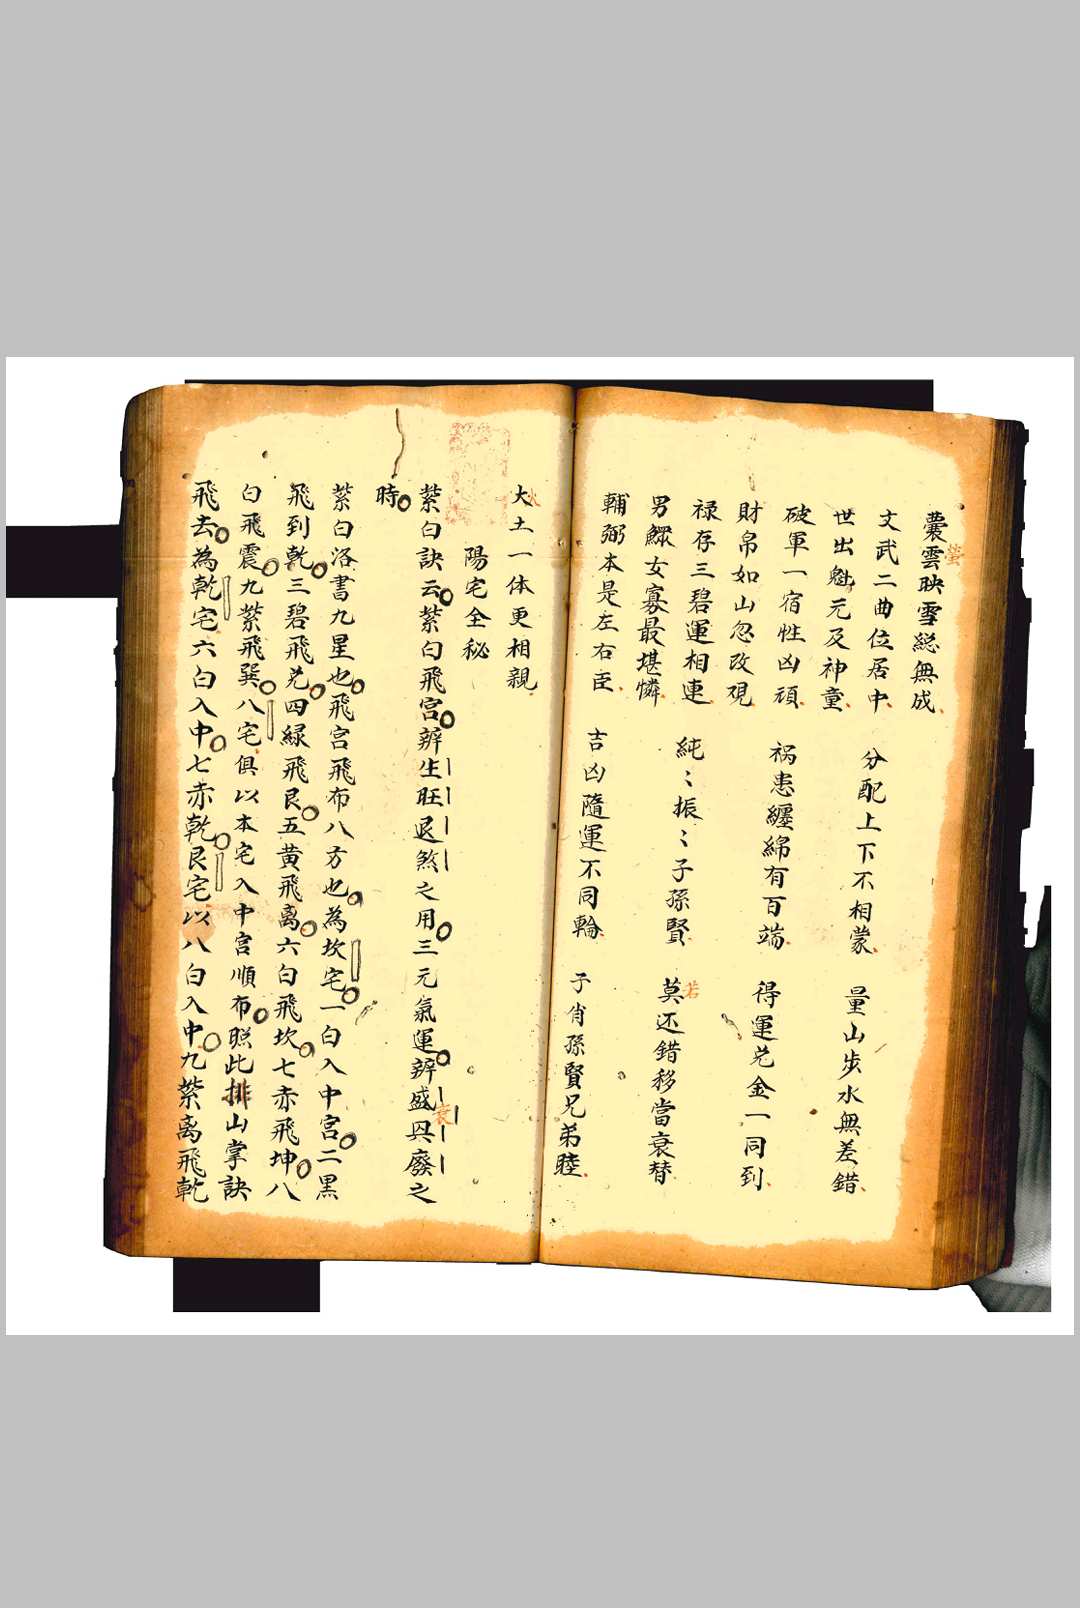 囊雲映雪総無成
文武二曲位居中 分配上下不相蒙 量山步水無差錯
世出魁元及神童
破軍一宿性凶頑 祸患纒綿有百端 得運兑金一同到
財帛如山忽改覌
禄存三碧運相連 純〻振〻子孫賢 莫还錯移當衰替
男鰥女寡最堪憐
輔弼本是左右臣 吉凶隨運不同輪 子肖孫賢兄弟睦
大土一体更相親
陽宅全秘
紫白訣云紫白飛宮辨生旺退煞之用三元氣運辨盛与廢之
時
紫白洛書九星也飛宮飛布八方也為坎宅一白入中宮二黑
飛到乾三碧飛兑四緑飛艮五黄飛离六白飛坎七赤飛坤八
白飛震九紫飛巽八宅俱以本宅入中宮順布照此排山掌訣
飛去為乾宅六白入中七赤乾艮宅以八白入中九紫离飛乾
螢
火
若
衰